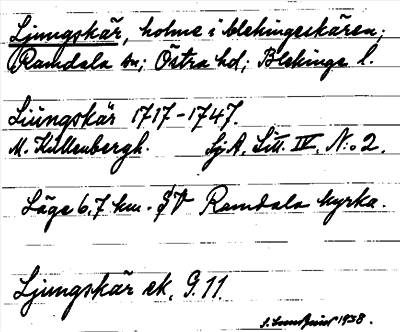 Ljungskär, holme i blekingeskären;
Ramdala sn; Östra hd; Blekinge l.
Liüngskär 1717-1747.
M. Küllenbergh. Sj. A. Litt. IV. N:o 2.
Läge 6,7 km. SV Ramdala kyrka.
Ljungskär ek. 9.11.
1938.